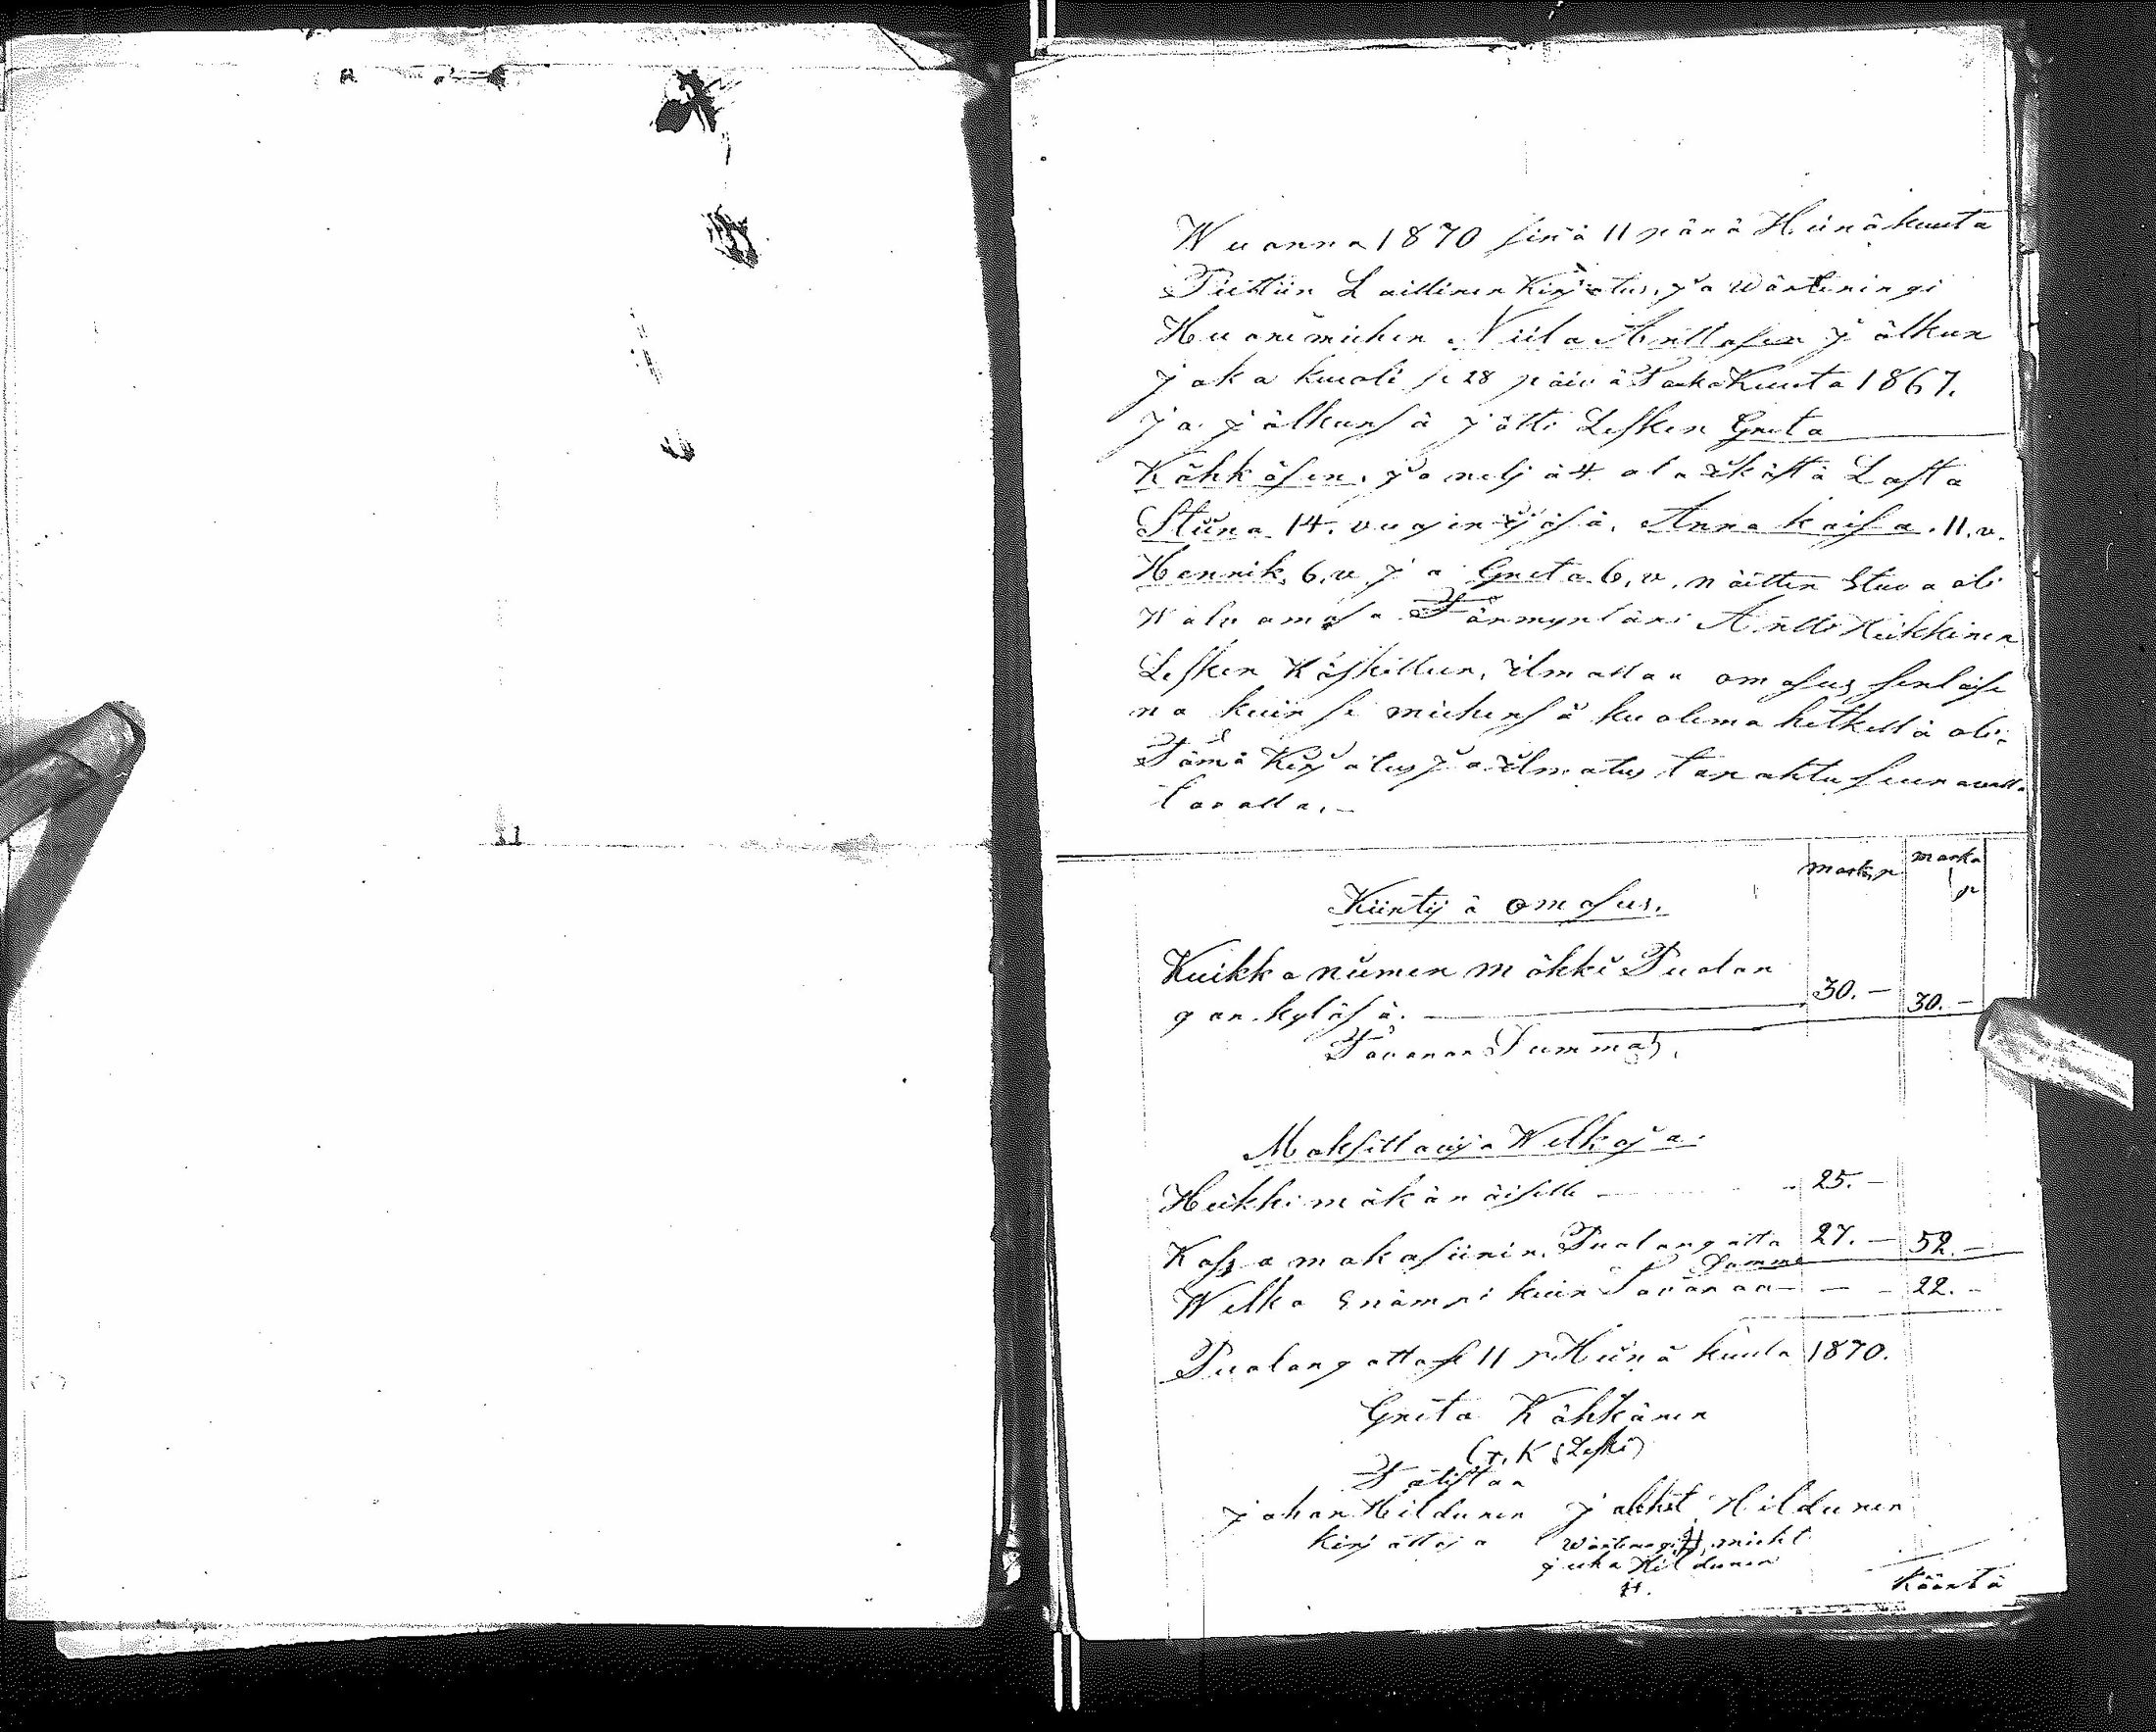 Wuonna 1870 sinä 11 pänä Heinäkuuta
Piettiin Laillinen Kirjotus, ja wärteringi
Huonemiehen Niilo Anttosen jälkun
joka kuoli se 28 päivä Toukokuuta 1867.
ja jälkunsä jätti Lesken Greta
Kähkösen, ja neljä 4 ala ikästä Lasta
Stiina 14. vuojen ijäsä, Anna kaisa. 11. v.
Henrik, 6. v. ja Greta 6. v. näitten etua oli
Walvomasa Törmynläni Antti Heikkinen
Lesken Käskettiin, ilmottaa omasus senläse
na kuin se miehensä kuolema hetkellä oli:
Tämä Kirjotus ja ilmotus tapahtu seuraavalla
tavalla. –
marka p marka p
Kiintijä omasus.
Kuikka niimen mökki Puolan
gan kyläsä. 30. – 30. –
Tavaran Summa,
Maksettavija Welkoja.
Heikki mäkänäiselle 25. –
Kassa makasiinin, Puolangalta 27. – 52. –
Summa
Welka enämpi kuin Tavaraa – – – 22. –
Puolangalla se 11 p Heinäkuuta 1870.
Greta Kähkönen
(G. K Leski)
Tötistaa
Johan Heildunen Jakket Heildunen
kirjottaja Wärteringi miehet
juka Heildunen
H.
Käantä